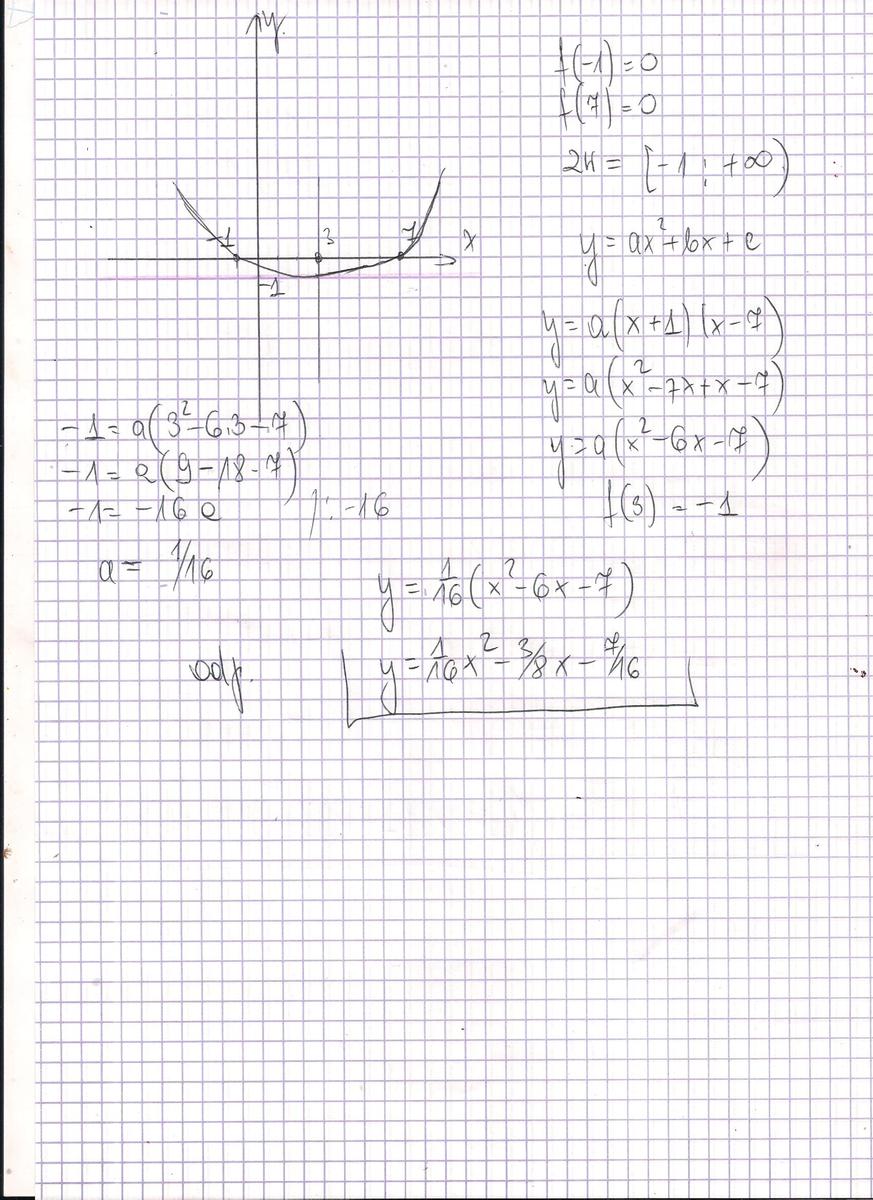 y
-1
3
7
x
-1
f(-1)=0
f(7)=0
ZW = [-1; +∞)
y = ax²+bx+c
y = a(x+1)(x-7)
y = a(x²-7x+x-7)
y = a(x²-6x-7)
f(3) = -1
-1 = a(3²-6·3-7)
-1 = a(9-18-7)
-1 = -16a /: -16
a = 1/16
y = 1/16(x²-6x-7)
odp. y = 1/16x² - 3/8x - 7/16